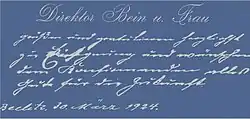 Direktor Bein u. Frau
grüßen und gratulieren herzlichst
zur Einsegnung und wünschen
dem Konfirmanden alles
Gute für die Zukunft
Beelitz, 30. März 1924.